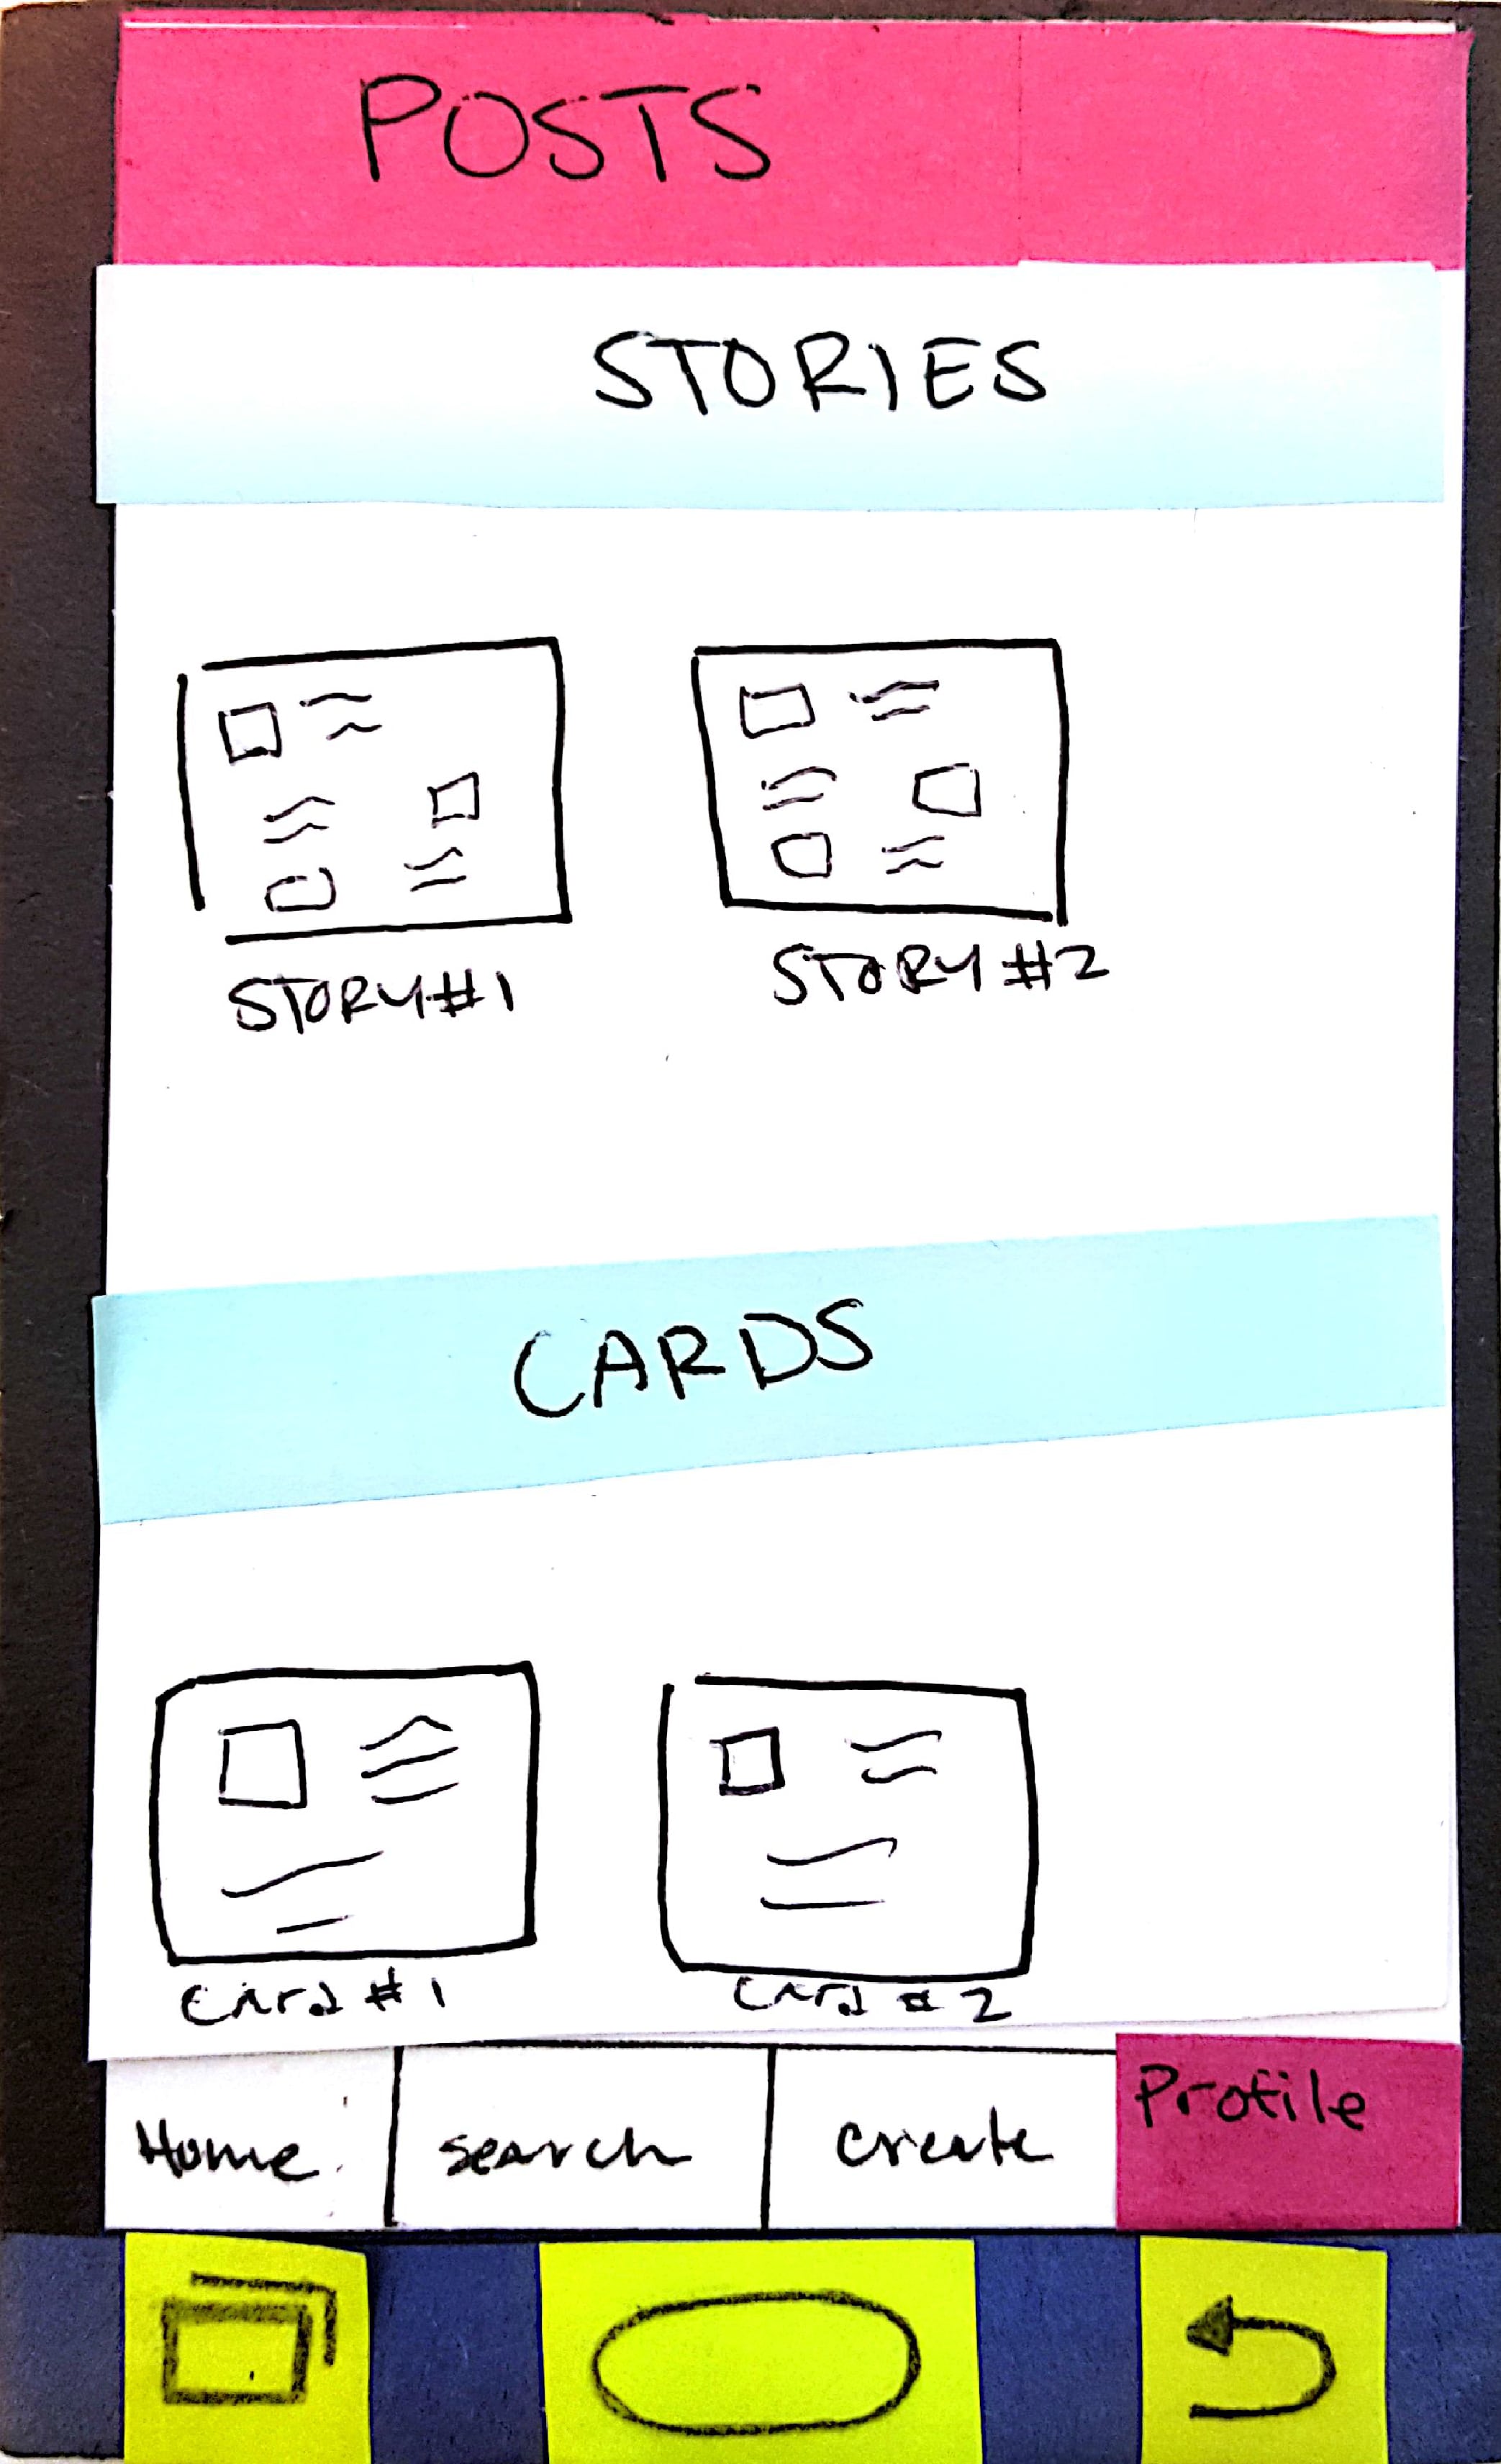 POSTS
STORIES
STORY #1 STORY #2
CARDS
Card #1 Card #2
Home search create Profile